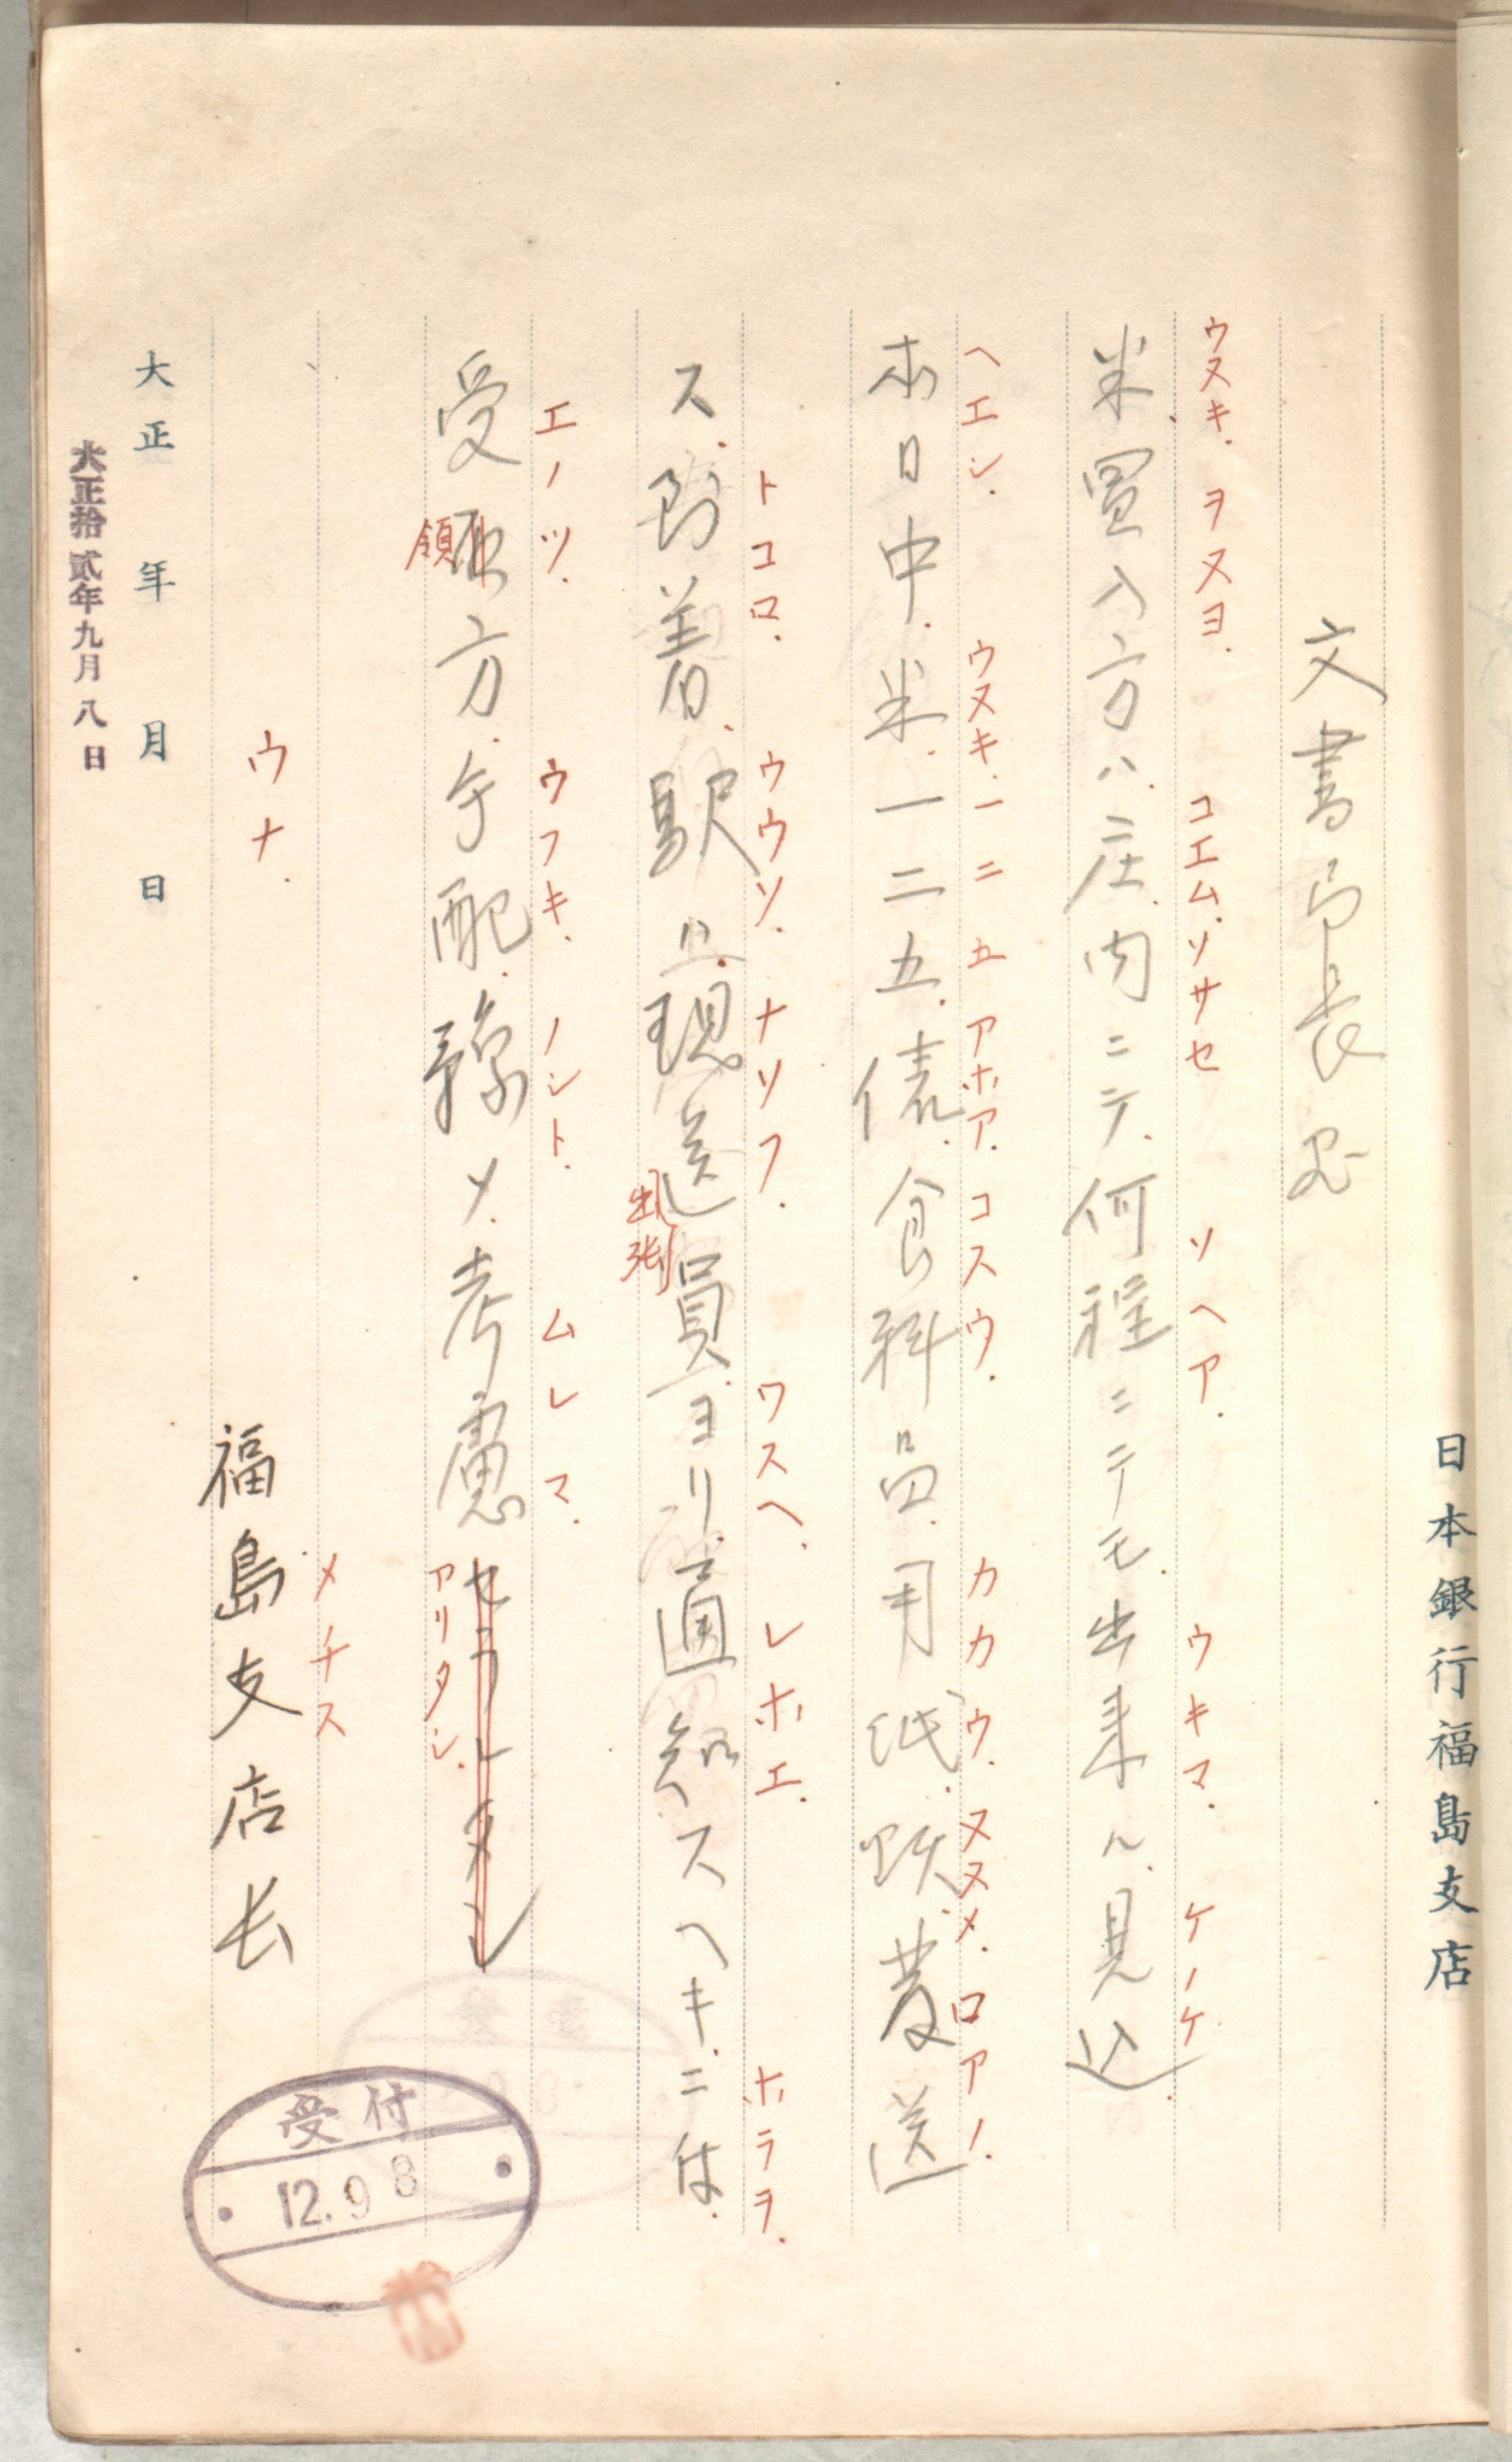 日本銀行福島支店
文書局長宛
ウヌキ.ヲヌヨ.コエム.ソサセ ソヘア.ウキマ.ケノケ
米買入方ハ庄内ニテ何程ニテモ出来ル見込
ヘエシ.ウヌキ.一二五アホア.コスウ.カカウ.ヌヌメ.ロアノ.
本日中米一二五俵食料品用紙類発送
トコロ.ウウソ.ナソフ.ワスヘ.レホエ.ホララ.
ス到着駅ハ現送員ヨリ通知スヘキニ付
出張
エノツ.ウフキ.ノント.ムレマ.
受取方手配予メ考慮セラレタシ
領
アリタシ.
メチス
ウナ.
福島支店长
大正 年 月 日
大正拾貳年九月八日
受付
12.9 8